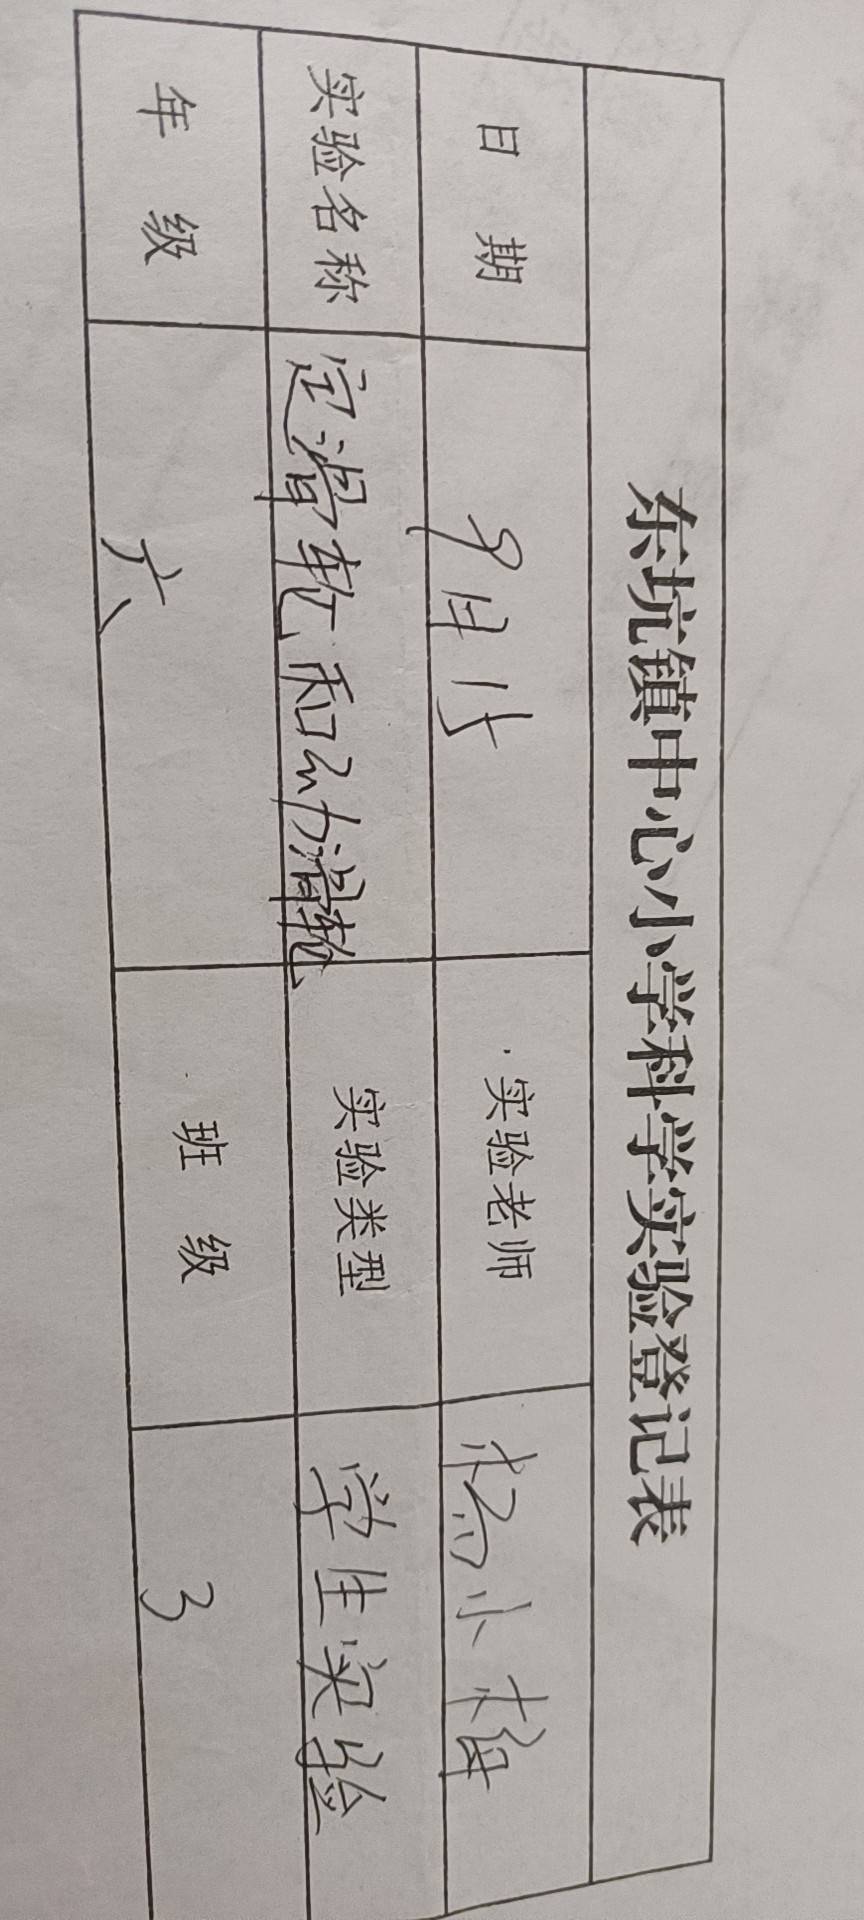 东坑镇中心小学科学实验登记表
日 期 9月15 实验老师 杨小梅
实验名称 定滑轮和动滑轮 实验类型 学生实验
年 级 六 班 级 3